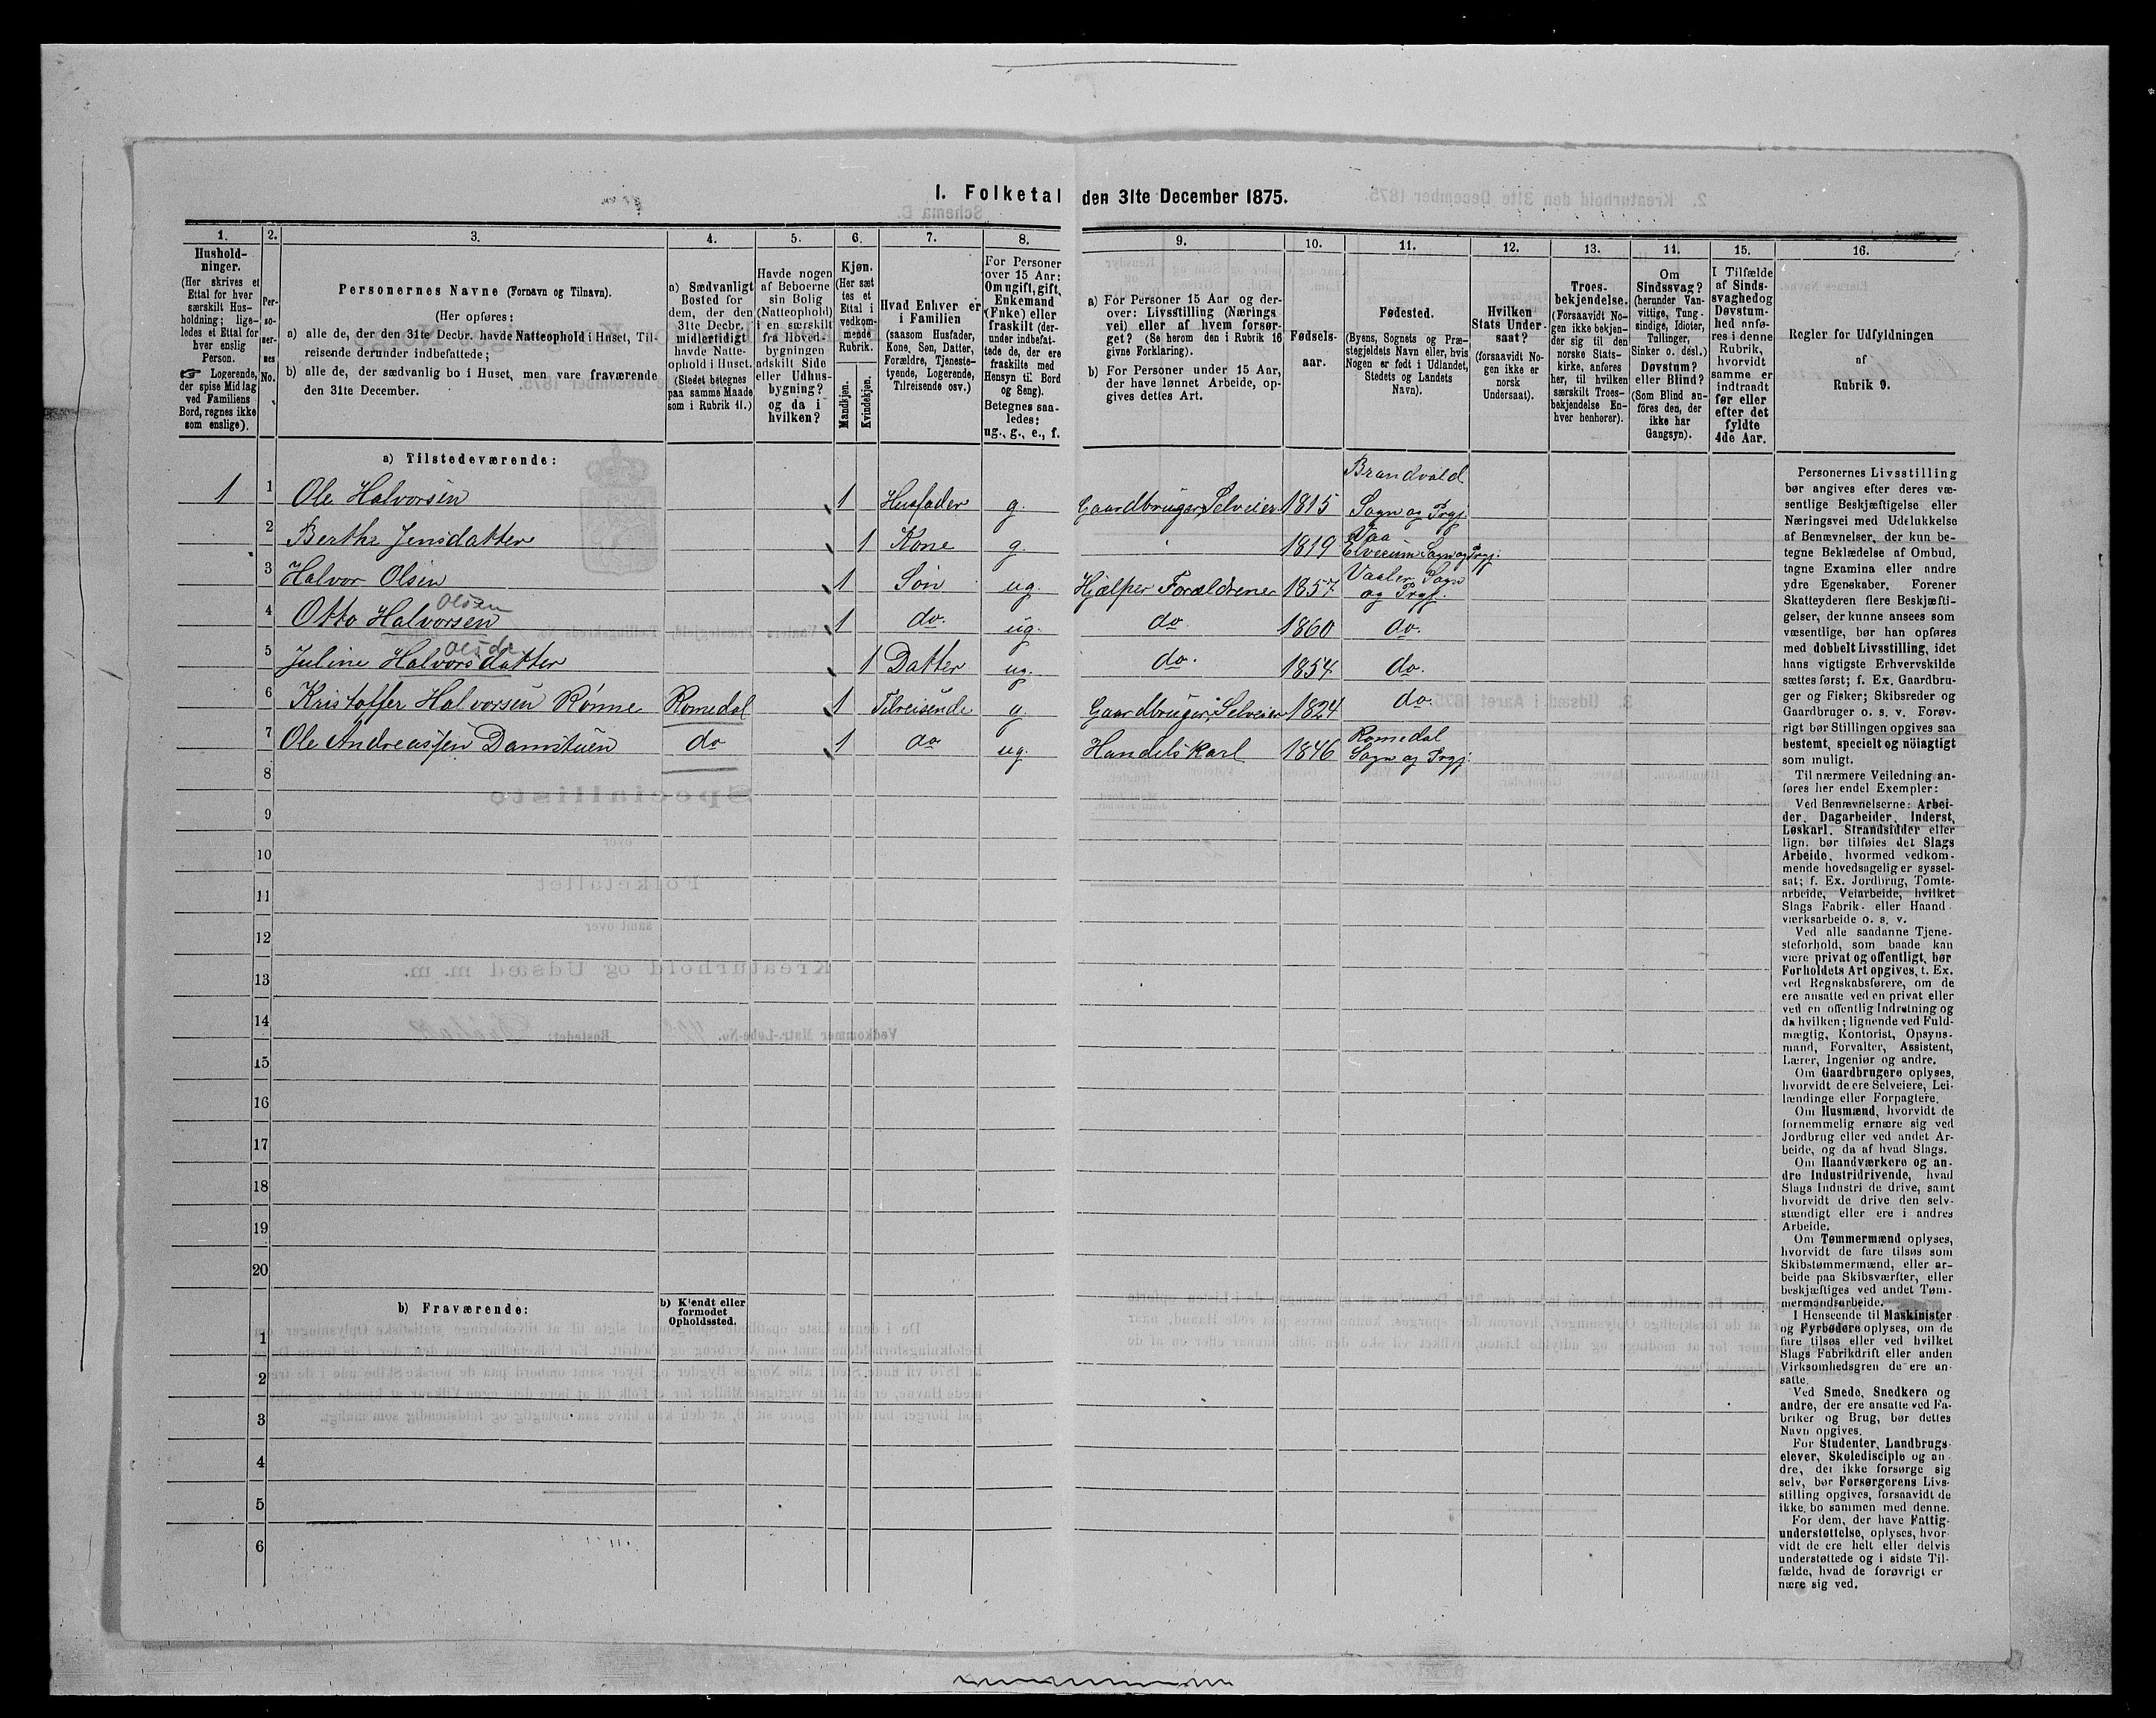 I. Folketal den 31te December 1875.
1. 2. 3. 4. 5. 6. 7. 8. 9. 10. 11. 12. 13. 14. 15. 16.
Hushold-
ninger.
(Her skrives et
Ettal for hver
særskilt Hus-
holdning; lige-
ledes et Ettal for
hver enslig
Person.
☞ Logerende,
der spise Middag
ved Familiens
Bord, regnes ikke
som enslige).
Per-
so-
ner-
nes
No.
Personernes Navne (Fornavn og Tilnavn).
(Her opføres:
a) alle de, der den 31te Decbr. havde Natteophold i Huset, Til-
reisende derunder indbefattede;
b) alle de, der sædvanlig bo i Huset, men vare fraværende
den 31te December.
a) Sædvanligt
Bosted for
dem, der den
31te Decbr.
midlertidigt
havde Natte-
ophold i Huset.
(Stedet betegnes
paa samme Maade
som i Rubrik 11.)
Havde nogen
af Beboerne
sin Bolig
(Natteophold)
i en særskilt
fra Hoved-
bygningen
adskilt Side
eller Udhus-
bygning?
og da i
hvilken?
Kjøn.
(Her sæt
tes et
Ettal i
vedkom-
mende
Rubrik.
Mandkjøn.
Kvindekjøn.
Hvad Enhver er
i Familien
(saasom Husfader,
Kone, Søn, Datter,
Forældre, Tjeneste-
tyende, Logerende,
Tilreisende osv.)
For Personer
over 15 Aar:
Om ugift, gift,
Enkemand
(Enke) eller
fraskilt (der-
under indbefat-
tede de, der ere
fraskilte med
Hensyn til Bord
og Seng).
Betegnes saa-
ledes:
ug., g., e., f.
a) For Personer 15 Aar og der-
over: Livsstilling (Nærings
vei) eller af hvem forsør-
get? (Se herom den i Rubrik 16
givne Forklaring).
b) For Personer under 15 Aar,
der have lønnet Arbeide, op-
gives dettes Art.
Fødsels-
aar.
Fødested.
(Byens, Sognets og Præ-
stegjeldets Navn eller, hvis
Nogen er født i Udlandet,
Stedets og Landets
Navn).
Hvilken
Stats Under-
saat?
(forsaavidt No-
gen ikke er
norsk
Undersaat).
Troes-
bekjendelse.
(Forsaavidt No-
gen ikke bekjen-
der sig til den
norske Stats-
kirke, anføres
her, til hvilken
særskilt Troes-
bekjendelse En-
hver henhører).
Om
Sindssvag?
(herunder Van-
vittige, Tung-
sindige, Idioter,
Tullinger,
Sinker o. desl.)
Døvstum?
eller Blind?
(Som Blind an-
føres den, der
ikke har
Gangsyn).
I Tilfælde
af Sinds-
svaghed og
Døvstum-
hed anfø-
res i denne
Rubrik,
hvorvidt
samme er
indtraadt
før eller
efter det
fyldte
4de Aar.
Regler for Udfyldningen
af
Rubrik 9.
a) Tilstedeværende:
Brandvold
1 1 Ole Halvorsen 1 Husfader g. Gaardbruger Selveier 1815 Sogn og Prgj.
2 Berthe Jensdatter 1 Kone g. 1819 Elverum Sogn og Prgj.
3 Halvor Olsen 1 Søn ug. Hjælper Forældrene 1857 Vaaler Sogn og Prgj.
Olsen
4 Otto Halvorsen 1 do. ug. do. 1860 do.
Olsdr
5 Juline Halvorsdatter 1 Datter ug. do. 1854 do.
6 Kristoffer Halvorsen Rønne Romedal 1 Tilreisende g. Gaardbruger Selveier 1824 do.
7 Ole Andreassen Damstuen do 1 do ug. Handelskarl 1846 Romedal Sogn og Prgj.
8
9
10
11
12
13
14
15
16
17
18
19
20
b) Fraværende:
b) Kjendt eller
formodet
Opholdssted.
1
2
3
4
5
6
Personernes Livsstilling
bør angives efter deres væ-
sentlige Beskjæftigelse eller
Næringsvei med Udelukkelse
af Benævnelser, der kun be-
tegne Beklædelse af Ombud,
tagne Examina eller andre
ydre Egenskaber. Forener
Skatteyderen flere Beskjæfti-
gelser, der kunne ansees som
væsentlige, bør han opføres
med dobbelt Livsstilling, idet
hans vigtigste Erhvervskilde
sættes først; f. Ex. Gaardbru-
ger og Fisker; Skibsreder og
Gaardbruger o. s. v. Forøv-
rigt bør Stillingen opgives saa
bestemt, specielt og nöiagtigt
som muligt.
Til nærmere Veiledning an-
føres her endel Exempler:
Ved Benævnelserne: Arbei-
der, Dagarbeider, Inderst,
Løskarl, Strandsidder eller
lign. bør tilføies det Slags
Arbeide, hvormed vedkom-
mende hovedsagelig er syssel-
sat; f. Ex. Jordbrug, Tomte-
arbeide, Veiarbeide, hvilket
Slags Fabrik- eller Haand-
værksarbeide o. s. v.
Ved alle saadanne Tjene-
steforhold, som baade kan
være privat og offentligt, bør
Forholdets Art opgives, t. Ex.
ved Regnskabsførere, om de
ere ansatte ved en privat eller
ved en offentlig Indretning og
da hvilken; lignende ved Fuld-
mægtig, Kontorist, Opsyns-
mand, Forvalter, Assistent,
Lærer, Ingeniør og andre.
Om Gaardbrugere oplyses,
hvorvidt de ere Selveiere, Lei-
lændinge eller Forpagtere.
Om Husmænd, hvorvidt de
fornemmelig ernære sig ved
Jordbrug eller ved andet Ar-
beide, og da af hvad Slags.
Om Haandværkere og an-
dre Industridrivende, hvad
Slags Industri de drive, samt
hvorvidt de drive den selv-
stændigt eller ere i andres
Arbeide.
Om Tømmermænd oplyses,
hvorvidt de fare tilsøs som
Skibstømmermænd, eller ar-
beide paa Skibsværfter, eller
beskjæftiges ved andet Tøm-
mermandsarbeide.
I Henseende til Maskinister
og Fyrbødere oplyses, om de
fare tilsøs eller ved hvilket
Slags Fabrikdrift eller anden
Virksomhedsgren de ere an-
satte.
Ved Smede, Snedkere og
andre, der ere ansatte ved Fa-
briker og Brug, bør dettes
Navn opgives.
For Studenter, Landbrugs-
elever, Skoledisciple og an-
dre, der ikke forsørge sig
selv, bør Forsørgerens Livs-
stilling opgives, forsaavidt de
ikke bo sammen med denne.
For dem, der have Fattig-
understøttelse, oplyses, hvor-
vidt de ere helt eller delvis
understøttede og i sidste Til-
fælde, hvad de forøvrigt er
nære sig ved.